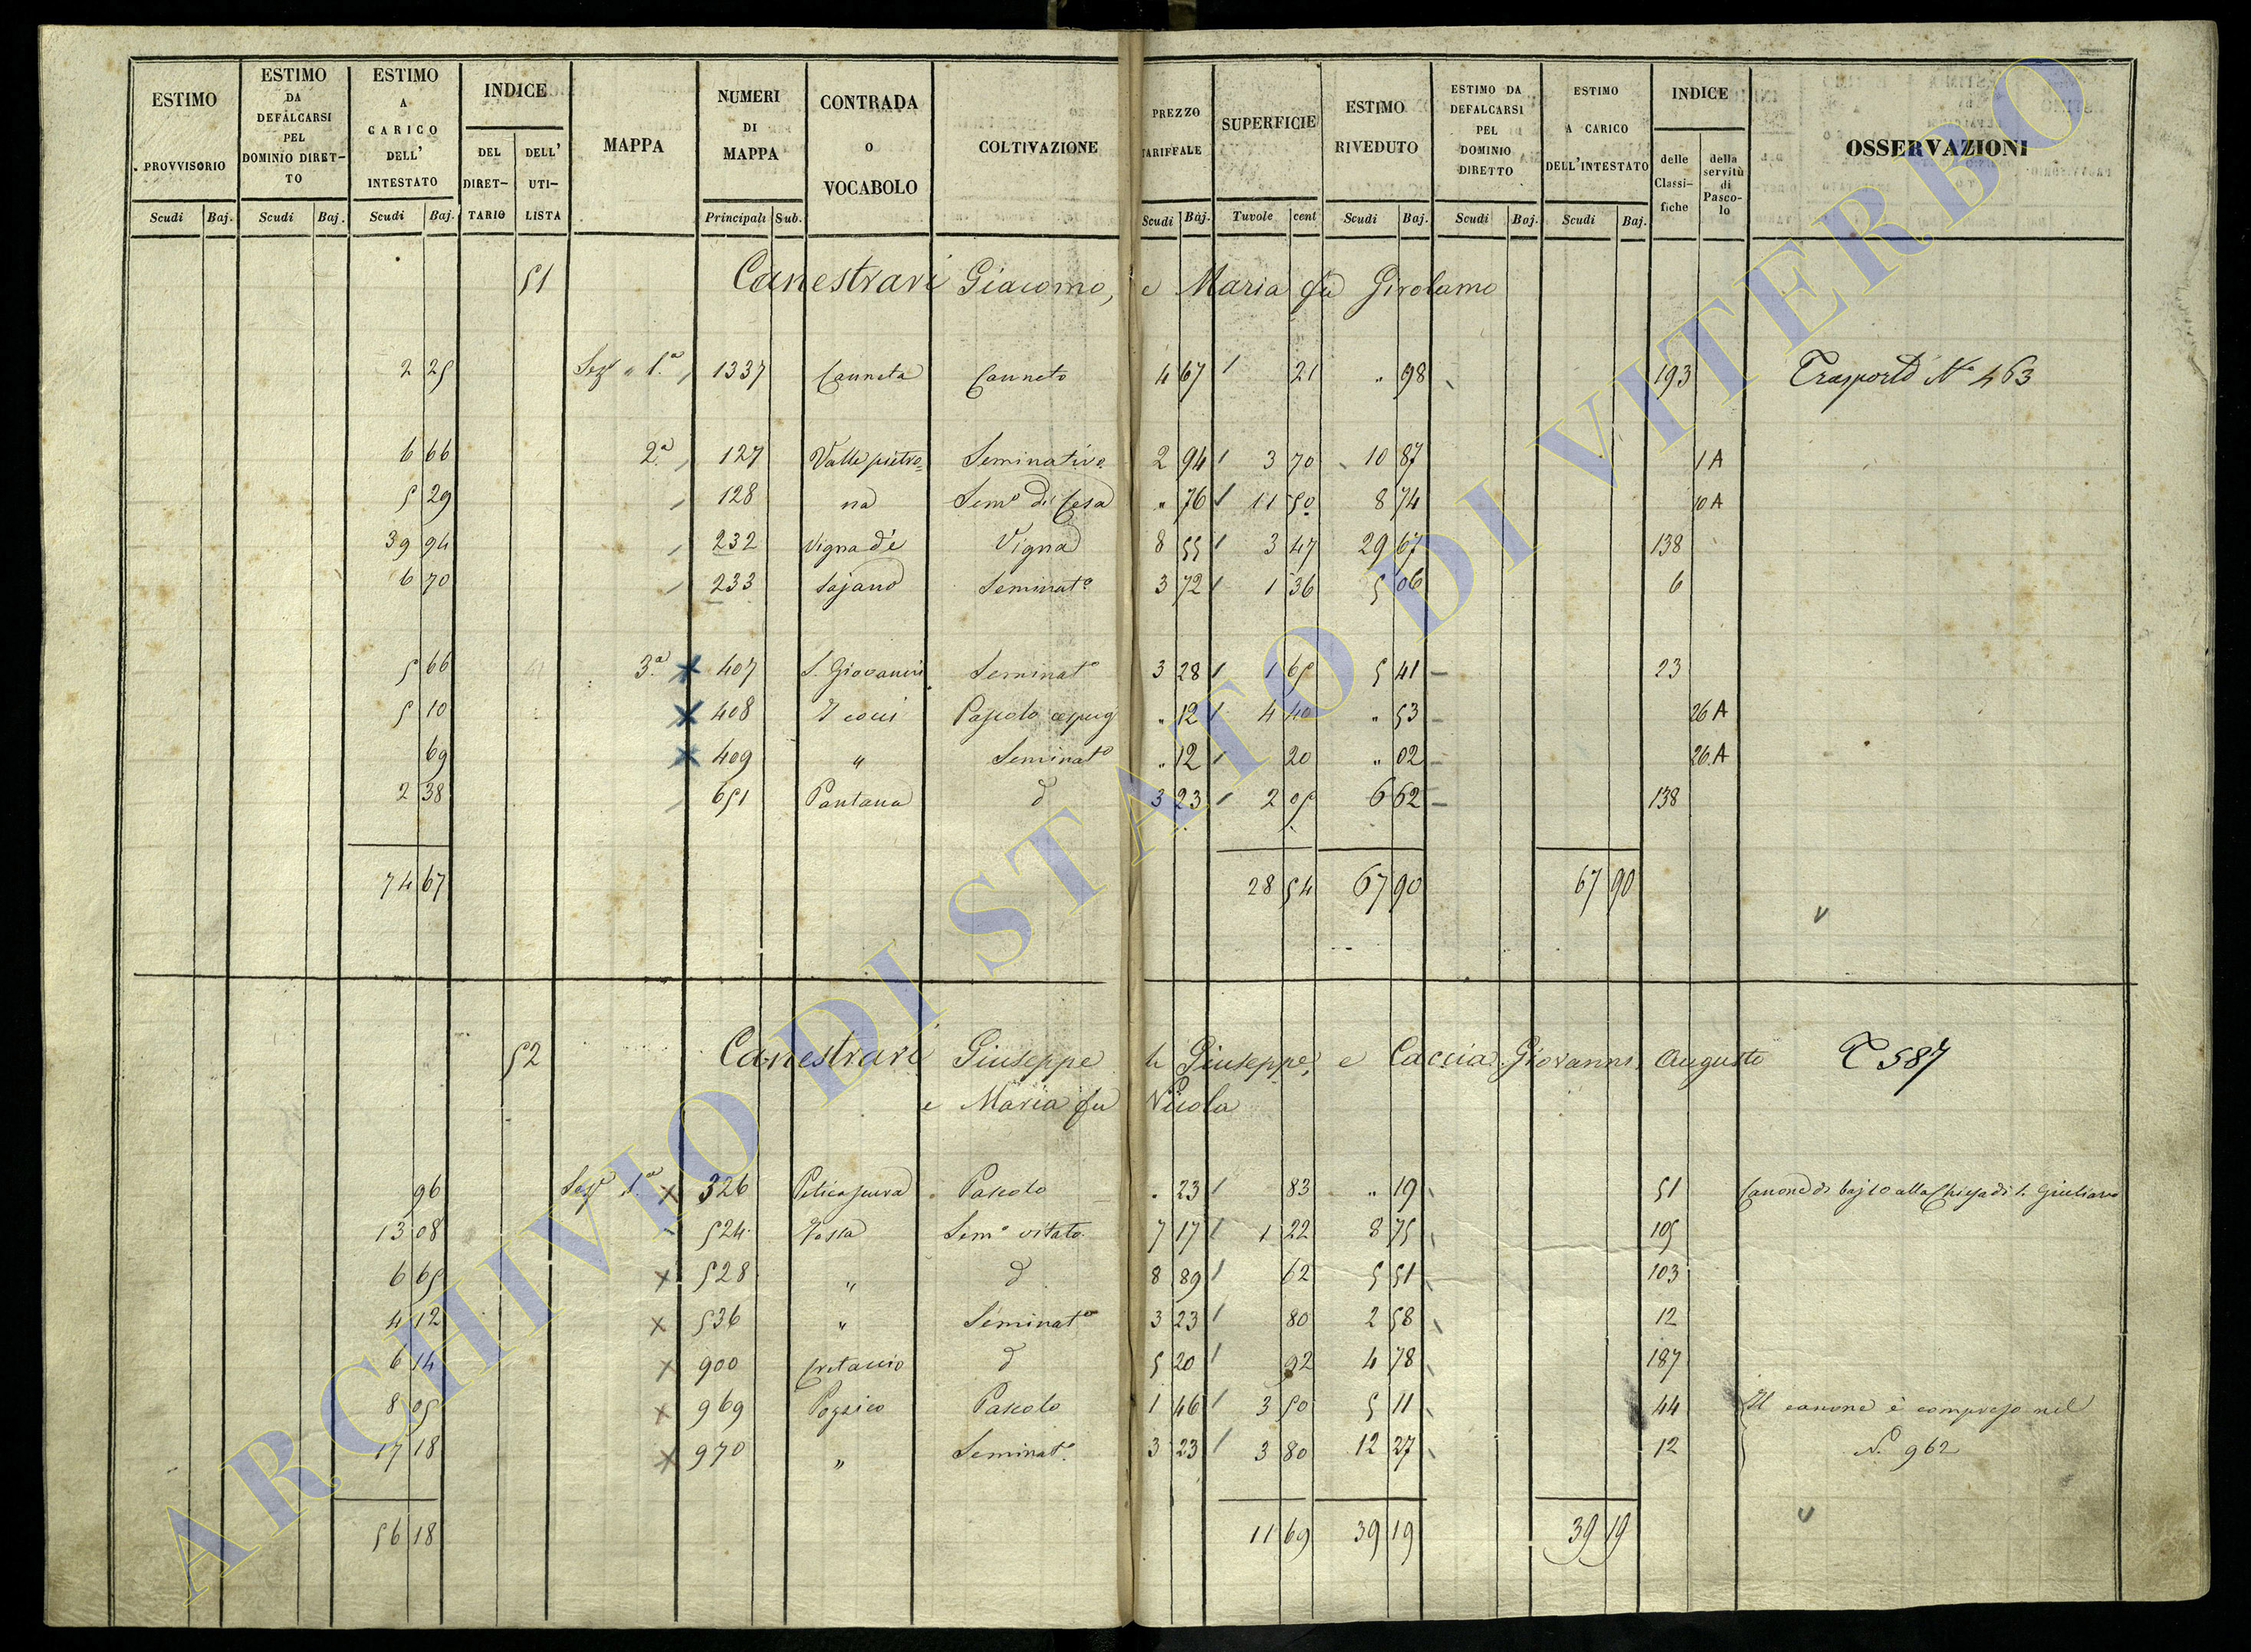 ESTIMO PROVVISORIO Scudi Baj. | ESTIMO DA DEFALCARSI PEL DOMINIO DIRETTO Scudi Baj. | ESTIMO A CARICO DELL' INTESTATO Scudi Baj. | INDICE DEL DIRETTARIO DELL' UTILISTA | MAPPA | NUMERI DI MAPPA Principali Sub. | CONTRADA O VOCABOLO | COLTIVAZIONE | PREZZO TARIFFALE Scudi Baj. | SUPERFICIE Tavole cent | ESTIMO RIVEDUTO Scudi Baj. | ESTIMO DA DEFALCARSI PEL DOMINIO DIRETTO Scudi Baj. | ESTIMO A CARICO DELL'INTESTATO Scudi Baj. | INDICE delle Classifiche della servitù di Pascolo | OSSERVAZIONI
51 Canestrari Giacomo, e Maria fu Girolamo
2 25 Sezᵉ 1.ª 1337 Canneta Canneto 4 67 21 " 98 193 Trasporto N° 463
6 66 2.ª 127 Valle pietro= Seminativo 2 94 3 70 10 87 1 A
5 29 128 na Semº di Cesa " 76 11 50 8 74 10 A
39 94 232 Vigna de Vigna 8 55 3 47 29 67 138
6 70 233 Sajano Seminatº 3 72 1 36 5 06 6
5 66 3.ª 407 S. Giovanni Seminatº 3 28 1 65 5 41 23
5 10 408 Pascolo " 12 4 40 " 53 26 A
69 409 " Seminatº " 12 20 " 02 26 A
2 38 651 Pantana d 3 23 2 05 6 62 138
74 67 28 54 67 90 67 90
52 Canestrari Giuseppe di Giuseppe, e Caccia Giovanni, Augusto T 587
e Maria fu Nicola
96 Sezᵉ 1.ª 326 Pascolo " 23 83 " 19 51 Canone di baj 10 alla Chiesa di S. Giuliano
13 08 524 Fossa Semº vitato 7 17 1 22 8 75 105
6 65 528 " d 8 89 62 5 51 103
4 12 536 " Seminatº 3 23 80 2 58 12
6 14 900 Cretaccio d 5 20 92 4 78 187
8 05 969 Pascolo 1 46 3 50 5 11 44 Il canone è compreso nel
17 18 970 " Seminatº 3 23 3 80 12 27 12 N. 962
56 18 11 69 39 19 39 19
ARCHIVIO DI STATO DI VITERBO